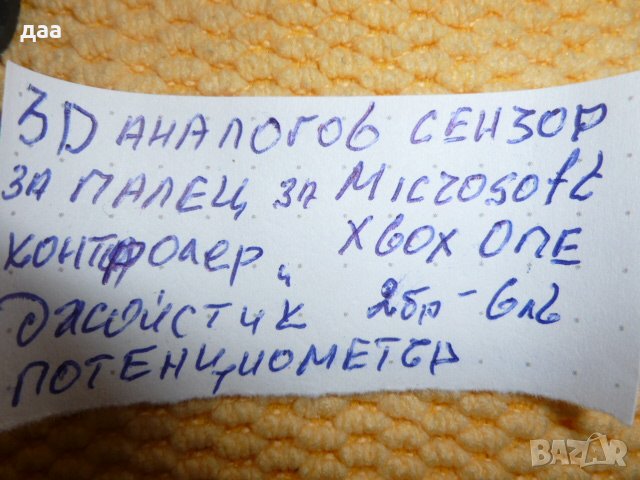 даа
3D АНАЛОГОВ СЕНЗОР
ЗА ПАЛЕЦ ЗА Microsoft
КОНТРОЛЕР, XBOX ONE
ДЖОЙСТИК 2бр - 6лв
ПОТЕНЦИОМЕТЪР
BAZAR